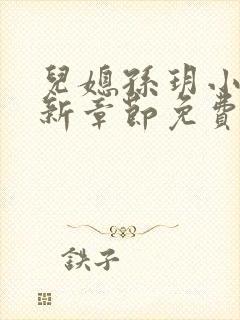 兒媳孫玥小
新章節免費
鉄子